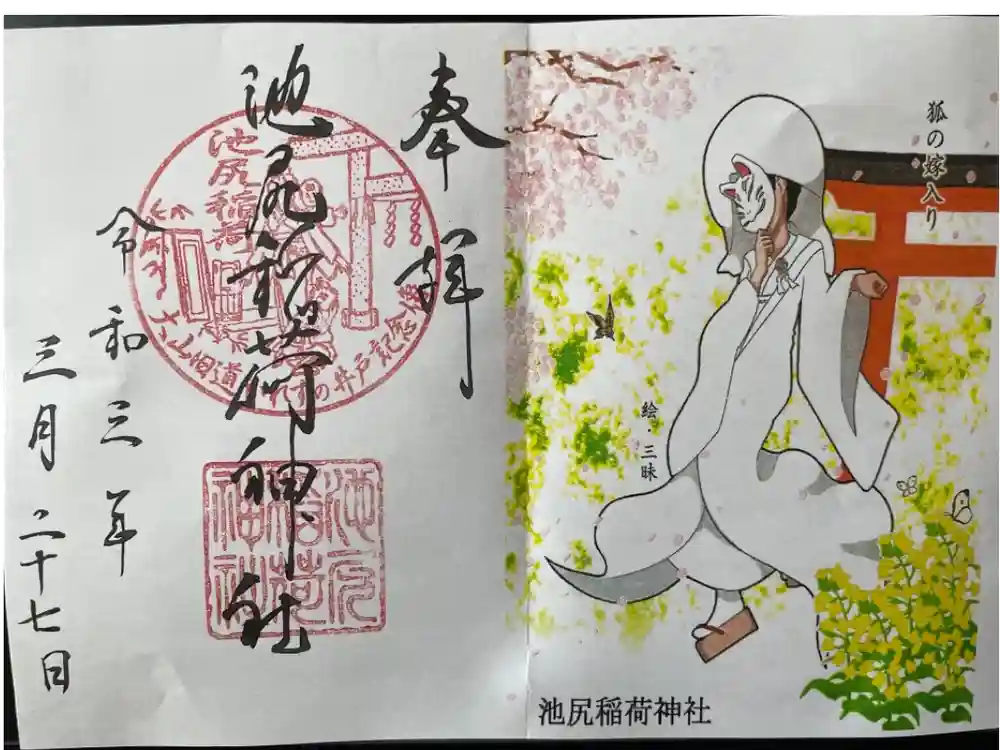 狐の嫁入り
絵・三昧
池尻稲荷神社
奉拝
池尻稲荷神社
令和三年
三月二十七日
池尻稲荷
大山旧道
の井戸記念
池尻稲荷神社